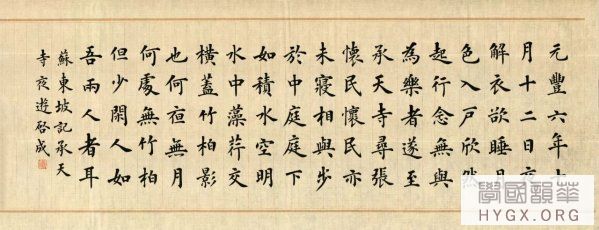 元豐六年十
月十二日夜
解衣欲睡月
色入戶欣然
起行念無與
為樂者遂至
承天寺尋張
懷民懷民亦
未寢相與步
於中庭庭下
如積水空明
水中藻荇交
橫蓋竹柏影
也何夜無月
何處無竹柏
但少閑人如
吾兩人者耳
蘇東坡記承天
寺夜遊啓成
學國韻華
HYGX.ORG